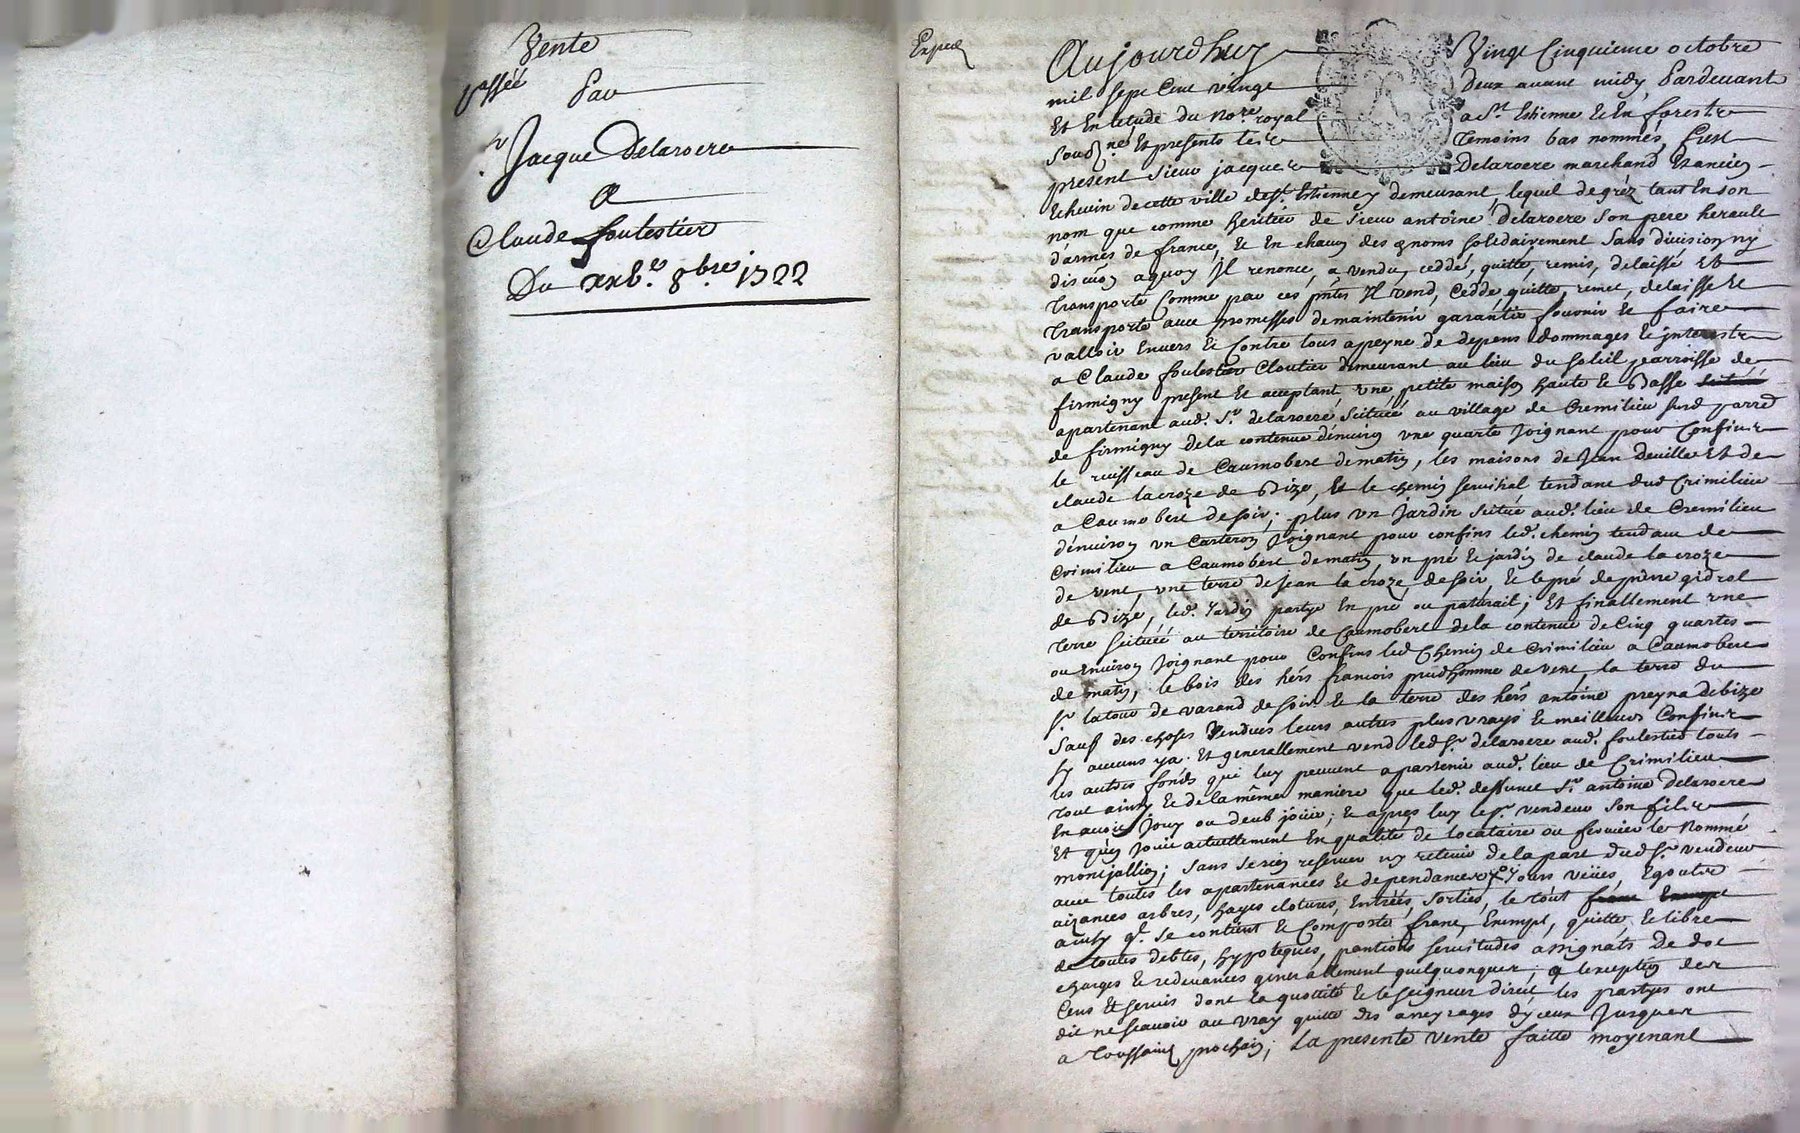 Vente
passéé
Par
Sr Jacque Delaroere
A
Claude foulestier
Du xxve 8bre 1722
Exped
Aujourdhuy Vingt Cinquieme octobre
mil sept Cent vingt Deux avant midy Pardevant
Et En letude du Nore royal a St Estienne Et En forestz
Soubzné Et presents les Temoins bas nommés, Fust
present Sieur jacques Delaroere marchand Et ancien
Echevin de cette ville de St Estienne y demeurant, lequel de gréz tant En son
nom que comme heritier de Sieur antoine delaroere Son pere herault
d'armes de france, Et En chacun des q noms solidairement Sans division ny
discuōn aquoy Il renonce, a vendu, ceddé, quitte, remis, delaissé Et
Transporté Comme par ces pn̄tes Il vend, Cedde quitte, remet, delaisse Et
Transporte avec promesses de maintenir garantir fournir Et faire
valloir Envers Et Contre tous apeyne de depens dommages Et interestz
a Claude foulestier Cloutier demeurant au lieu du Soleil parroisse de
firmigny present Et acceptant, vne petite maison haute Et Basse
apartenant aud. Sr delaroere Scituéé au village de Cremilieu susd parr̄e
de firmigny de la contenue d'environ vne quarte Joignant pour Confins
le ruisseau de Caumobert de matin, les maisons de Jean Deville Et de
claude la croze de Bize, Et le chemin servihal tendant dud Crimilieu
a Caumobert de soir; plus vn Jardin Scitué aud. lieu de Cremilieu
d'environ vn Carteron Joignant pour confins led. chemin tendant de
Crimilieu a Caumobert de matin, vn pré Et jardin de claude la croze
de vent, vne terre de Jean la croze, de soir, Et le pré de pierre gidrol
de Bize, led. Jardin partye En pré ou paturail; Et finallement vne
Terre Scituéé au territoire de Caumobert de la contenue de Cinq quartes
ou Environ Joignant pour Confins led Chemin de Crimilieu a Caumobert
de matin, le bois des hérs francois prudhomme de vent, la terre du
Sr latour de varand de soir Et la terre des hérs antoine preyna de bize
Sauf des choses Vendues leurs autres plus vrays Et meilleurs Confins
Sy aucuns ya. Et generallement vend led Sr delaroere aud. foulestier touts
les autres fonds qui luy peuvent apartenir aud. lieu de Crimilieu
tout ainsy Et de la même maniere que led. deffunct Sr antoine Delaroere
En avoit Jouy ou deub joüir; Et apres luy le Sr vendeur Son fils
Et qu'en Jouit actuellement En qualité de locataire ou fermier le Nommé
montjallin; Sans se rien reserver ny retenir de la part dud Sr vendeur
avec toutes les apartenances Et dependances Jours vëues, Egoutz
aizances arbres, hayes clotures, Entréés, Sortiés, le tout
ainsy q. Se contient Et Comporte franc, Exempt, quitte, Et libre
de toutes debtes, hypoteques, pantions servitudes assignats De dot
charges Et redevances generallement quelquonques; a lexception des
Cens Et servis dont la quottité Et le Seigneur direct les partyes ont
dit ne scavoir au vray quitte des arreyrages d'yceux Jusques
a Toussaint prochain; La presente vente faitte moyenant